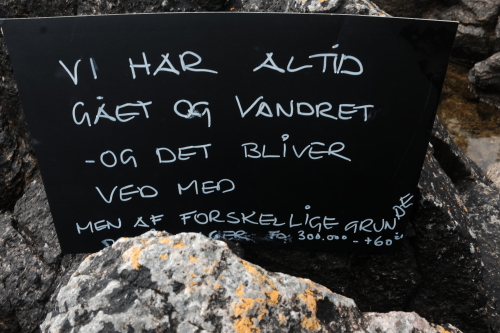 VI HAR ALTID
GÅET OG VANDRET
-OG DET BLIVER
VED MED
MEN AF FORSKELLIGE GRUNDE
300.000 - +60